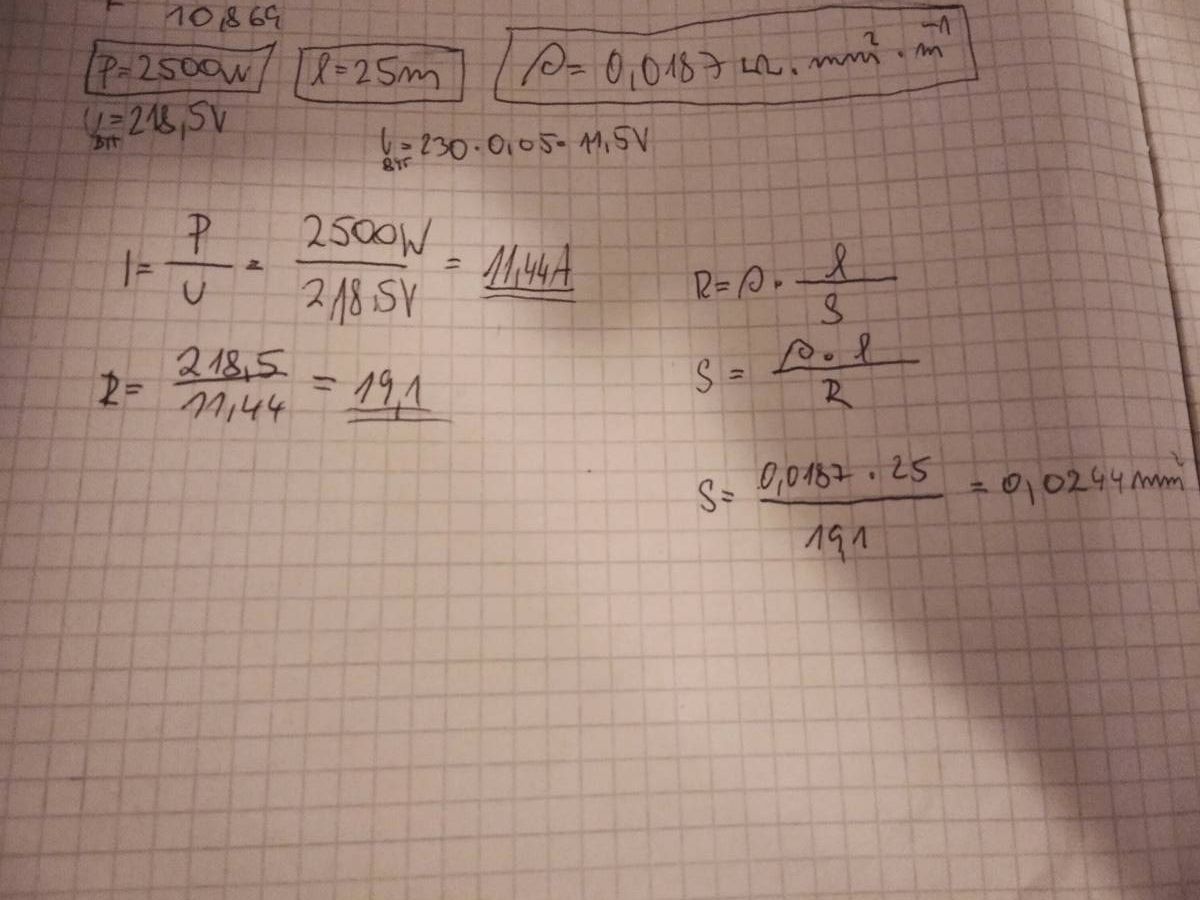 10,869
P=2500W l=25m ρ=0,0187 Ω.mm²·m⁻¹
U=218,5V
U=230·0,05=11,5V
I= P/U = 2500W/218,5V = 11,44A
R=ρ· l/S
R= 218,5/11,44 = 19,1
S= ρ·l/R
S= 0,0187·25/19,1 = 0,0244mm²